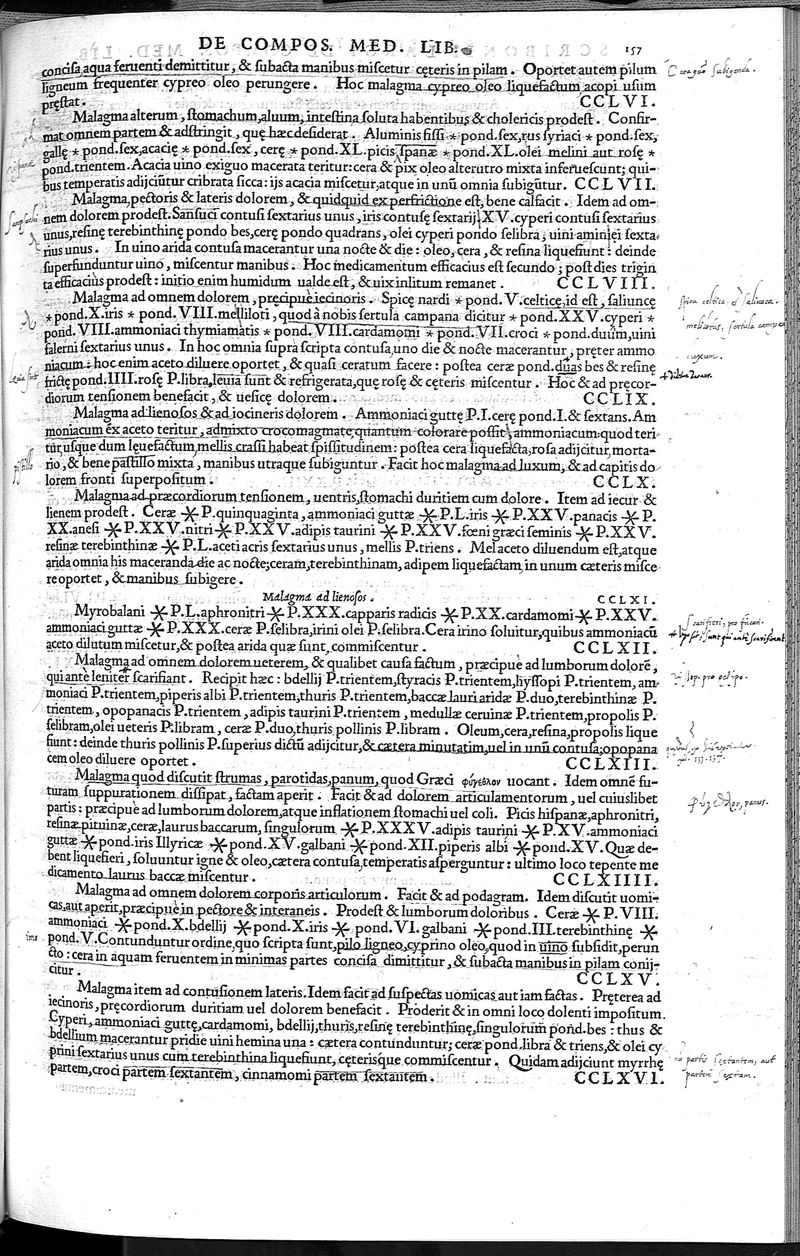 DE COMPOS. MED. LIB. 157
concisa,aqua feruenti demittitur, & subacta manibus miscetur cęteris in pilam. Oportet autem pilum
ligneum frequenter cypreo oleo perungere. Hoc malagma cypreo oleo liquefactum acopi usum
pręstat. CCLVI.
Malagma alterum, stomachum,aluum, intestina soluta habentibus & cholericis prodest. Confir-
mat omnem partem & adstringit, quę hæc desiderat. Aluminis fissi * pond.sex,rus syriaci * pond.sex,
gallę * pond.sex,acacię * pond.sex, cerę * pond.XL.picis spanæ * pond.XL.olei melini aut rosę *
pond.trientem. Acacia uino exiguo macerata teritur:cera & pix oleo alterutro mixta inferuescunt; qui-
bus temperatis adijciũtur cribrata sicca: ijs acacia miscetur,atque in unũ omnia subigũtur. CCLVII.
Malagma,pectoris & lateris dolorem, & quidquid ex perfrictione est, bene calfacit. Idem ad om-
nem dolorem prodest. Sansuci contusi sextarius unus, iris contusę sextarij XV.cyperi contusi sextarius
unus,resinę terebinthinę pondo bes,cerę pondo quadrans, olei cyperi pondo selibra, uini aminiei sexta-
rius unus. In uino arida contusa macerantur una nocte & die: oleo, cera, & resina liquefiunt: deinde
superfunduntur uino, miscentur manibus. Hoc medicamentum efficacius est secundo; post dies trigin
ta efficacius prodest: initio enim humidum ualde est, & uix inlitum remanet. CCLVIII.
Malagma ad omnem dolorem, pręcipuè iecinoris. Spicę nardi * pond.V.celticę,id est, saliuncę
* pond.X.iris * pond.VIII.melliloti, quod à nobis sertula campana dicitur * pond.XXV.cyperi *
pond.VIII.ammoniaci thymiamatis * pond.VIII.cardamomi * pond.VII.croci * pond.duûm,uini
falerni sextarius unus. In hoc omnia supra scripta contusa,uno die & nocte macerantur, pręter ammo
niacum: hoc enim aceto diluere oportet, & quasi ceratum facere: postea ceræ pond.duas bes & resinę
frictę pond.IIII.rosę P.libra,leuia sunt & refrigerata,quę rosę & cęteris miscentur. Hoc & ad pręcor-
diorum tensionem benefacit, & uesicę dolorem. CCLIX.
Malagma ad lienosos & ad iocineris dolorem. Ammoniaci guttę P.I.cerę pond.I.& sextans.Am
moniacum ex aceto teritur, admixto crocomagmate,quantum colorare possit; ammoniacum:quod teri
tur,usque dum lęuefactum,mellis crassi habeat spissitudinem: postea cera liquefacta,rosa adijcitur,morta-
rio, & bene pastillo mixta, manibus utraque subiguntur. Facit hoc malagma ad luxum, & ad capitis do-
lorem fronti superpositum. CCLX.
Malagma ad præcordiorum tensionem, uentris,stomachi duritiem cum dolore. Item ad iecur &
lienem prodest. Ceræ * P.quinquaginta, ammoniaci guttæ * P.L.iris * P.XXV.panacis * P.
XX.anesi * P.XXV.nitri * P.XXV.adipis taurini * P.XXV.fœni græci seminis * P.XXV.
resinæ terebinthinæ * P.L.aceti acris sextarius unus, mellis P.triens. Mel aceto diluendum est,atque
arida omnia his maceranda die ac nocte;ceram,terebinthinam, adipem liquefactam,in unum cæteris misce
re oportet, & manibus subigere.
Malagma ad lienosos. CCLXI.
Myrobalani * P.L.aphronitri * P.XXX.capparis radicis * P.XX.cardamomi * P.XXV.
ammoniaci guttæ * P.XXX.ceræ P.selibra,irini olei P.selibra.Cera irino soluitur,quibus ammoniacũ
aceto dilutum miscetur,& postea arida quæ sunt,commiscentur. CCLXII.
Malagma ad omnem dolorem ueterem, & qualibet causa factum, præcipuè ad lumborum dolorẽ,
qui ante leniter scarifiant. Recipit hæc: bdellij P.trientem,styracis P.trientem,hyssopi P.trientem, am-
moniaci P.trientem,piperis albi P.trientem,thuris P.trientem,baccæ lauri aridæ P.duo,terebinthinæ P.
trientem, opopanacis P.trientem, adipis taurini P.trientem, medullæ ceruinæ P.trientem,propolis P.
selibram,olei ueteris P.libram, ceræ P.duo,thuris pollinis P.libram. Oleum,cera,resina,propolis lique
fiunt: deinde thuris pollinis P.superius dictũ adijcitur,& cætera minutatim,uel in unũ contusa;opopana
cem oleo diluere oportet. CCLXIII.
Malagma quod discutit strumas, parotidas,panum, quod Græci φύγεθλον uocant. Idem omnẽ fu-
turam suppurationem dissipat, factam aperit. Facit & ad dolorem articulamentorum, uel cuiuslibet
partis: præcipuè ad lumborum dolorem,atque inflationem stomachi uel coli. Picis hispanæ,aphronitri,
resinæ pituinæ,ceræ,laurus baccarum, singulorum * P.XXXV.adipis taurini * P.XV.ammoniaci
guttæ * pond.iris Illyricæ * pond.XV.galbani * pond.XII.piperis albi * pond.XV.Quæ de-
bent liquefieri, soluuntur igne & oleo,cætera contusa,temperatis asperguntur: ultimo loco tepente me
dicamento laurus baccæ miscentur. CCLXIIII.
Malagma ad omnem dolorem corporis articulorum. Facit & ad podagram. Idem discutit uomi-
cas,aut aperit,præcipuè in pectore & interaneis. Prodest & lumborum doloribus. Ceræ * P.VIII.
ammoniaci * pond.X.bdellij * pond.X.iris * pond.VI.galbani * pond.III.terebinthinę *
pond.V.Contunduntur ordine,quo scripta sunt,pilo ligneo,cyprino oleo,quod in uino subsidit,perun
cto: cera in aquam feruentem in minimas partes concisa dimittitur, & subacta manibus in pilam conij-
citur. CCLXV.
Malagma item ad contusionem lateris.Idem facit ad suspectas uomicas aut iam factas. Pręterea ad
iecinoris, pręcordiorum duritiam uel dolorem benefacit. Proderit & in omni loco dolenti impositum.
Cyperi, ammoniaci guttę,cardamomi, bdellij,thuris,resinę terebinthinę,singulorum pond.bes: thus &
bdellium macerantur pridie uini hemina una: cætera contunduntur; ceræ pond.libra & triens,& olei cy
prini sextarius unus cum terebinthina liquefiunt, cęterisque commiscentur. Quidam adijciunt myrrhę
partem,croci partem sextantem, cinnamomi partem sextantem. CCLXVI.
Cera quę subigenda.
spica celtica
saliunca.
melilotus, sertula campana
luxum.
pistillo
Scarifieri, pro
Hysop. pro
panus.
imo
partis sextantem, aut
partem sextam.